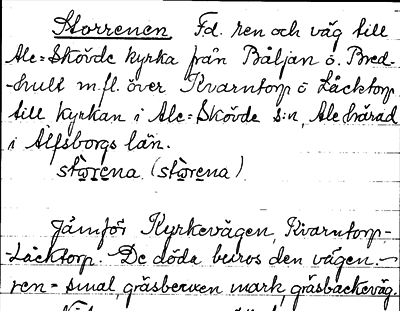 Storrenen Fd. ren och väg till
Ale=Skövde kyrka från Båljan o. Bred-
-hult m.fl. över Kvarntorp o Låcktorp
till kyrkan i Ale=Skövde s:n, Ale härad
i Älfsborgs län.
stòrena (stòrena)
Jämför Kyrkevägen, Kvarntorp-
-Låcktorp. De döda buros den vägen. -
ren = smal, gräsbeven mark, gräsbackeväg.